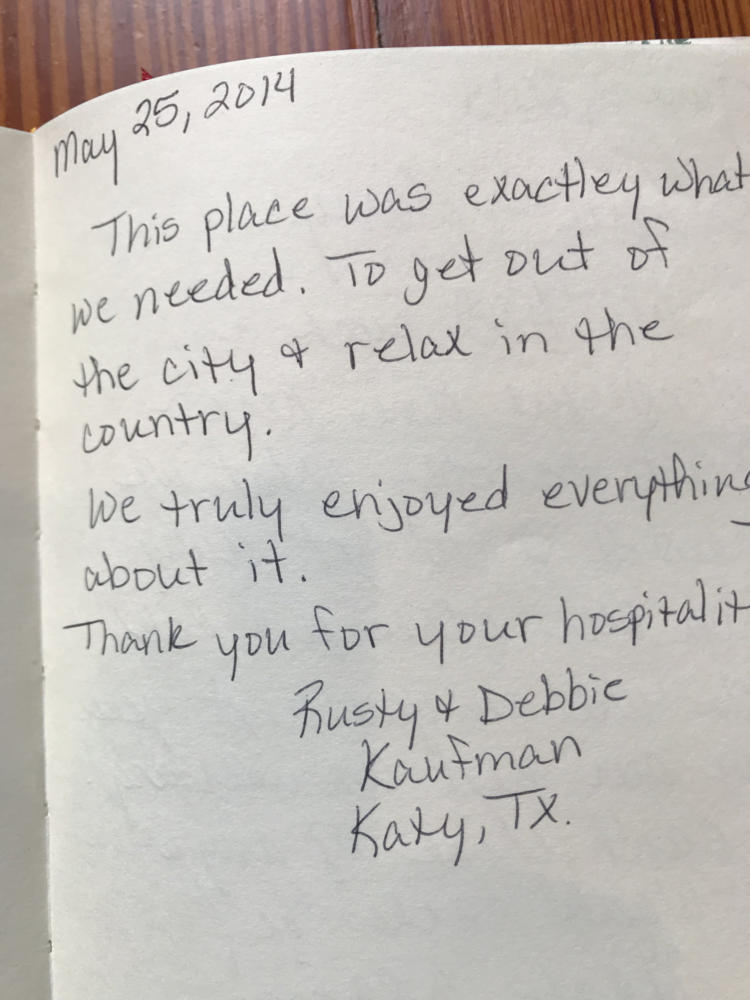 May 25, 2014
This place was exactley what
we needed. To get out of
the city & relax in the
country.
We truly enjoyed everything
about it.
Thank you for your hospitalit
Rusty & Debbie
Kaufman
Katy, Tx.